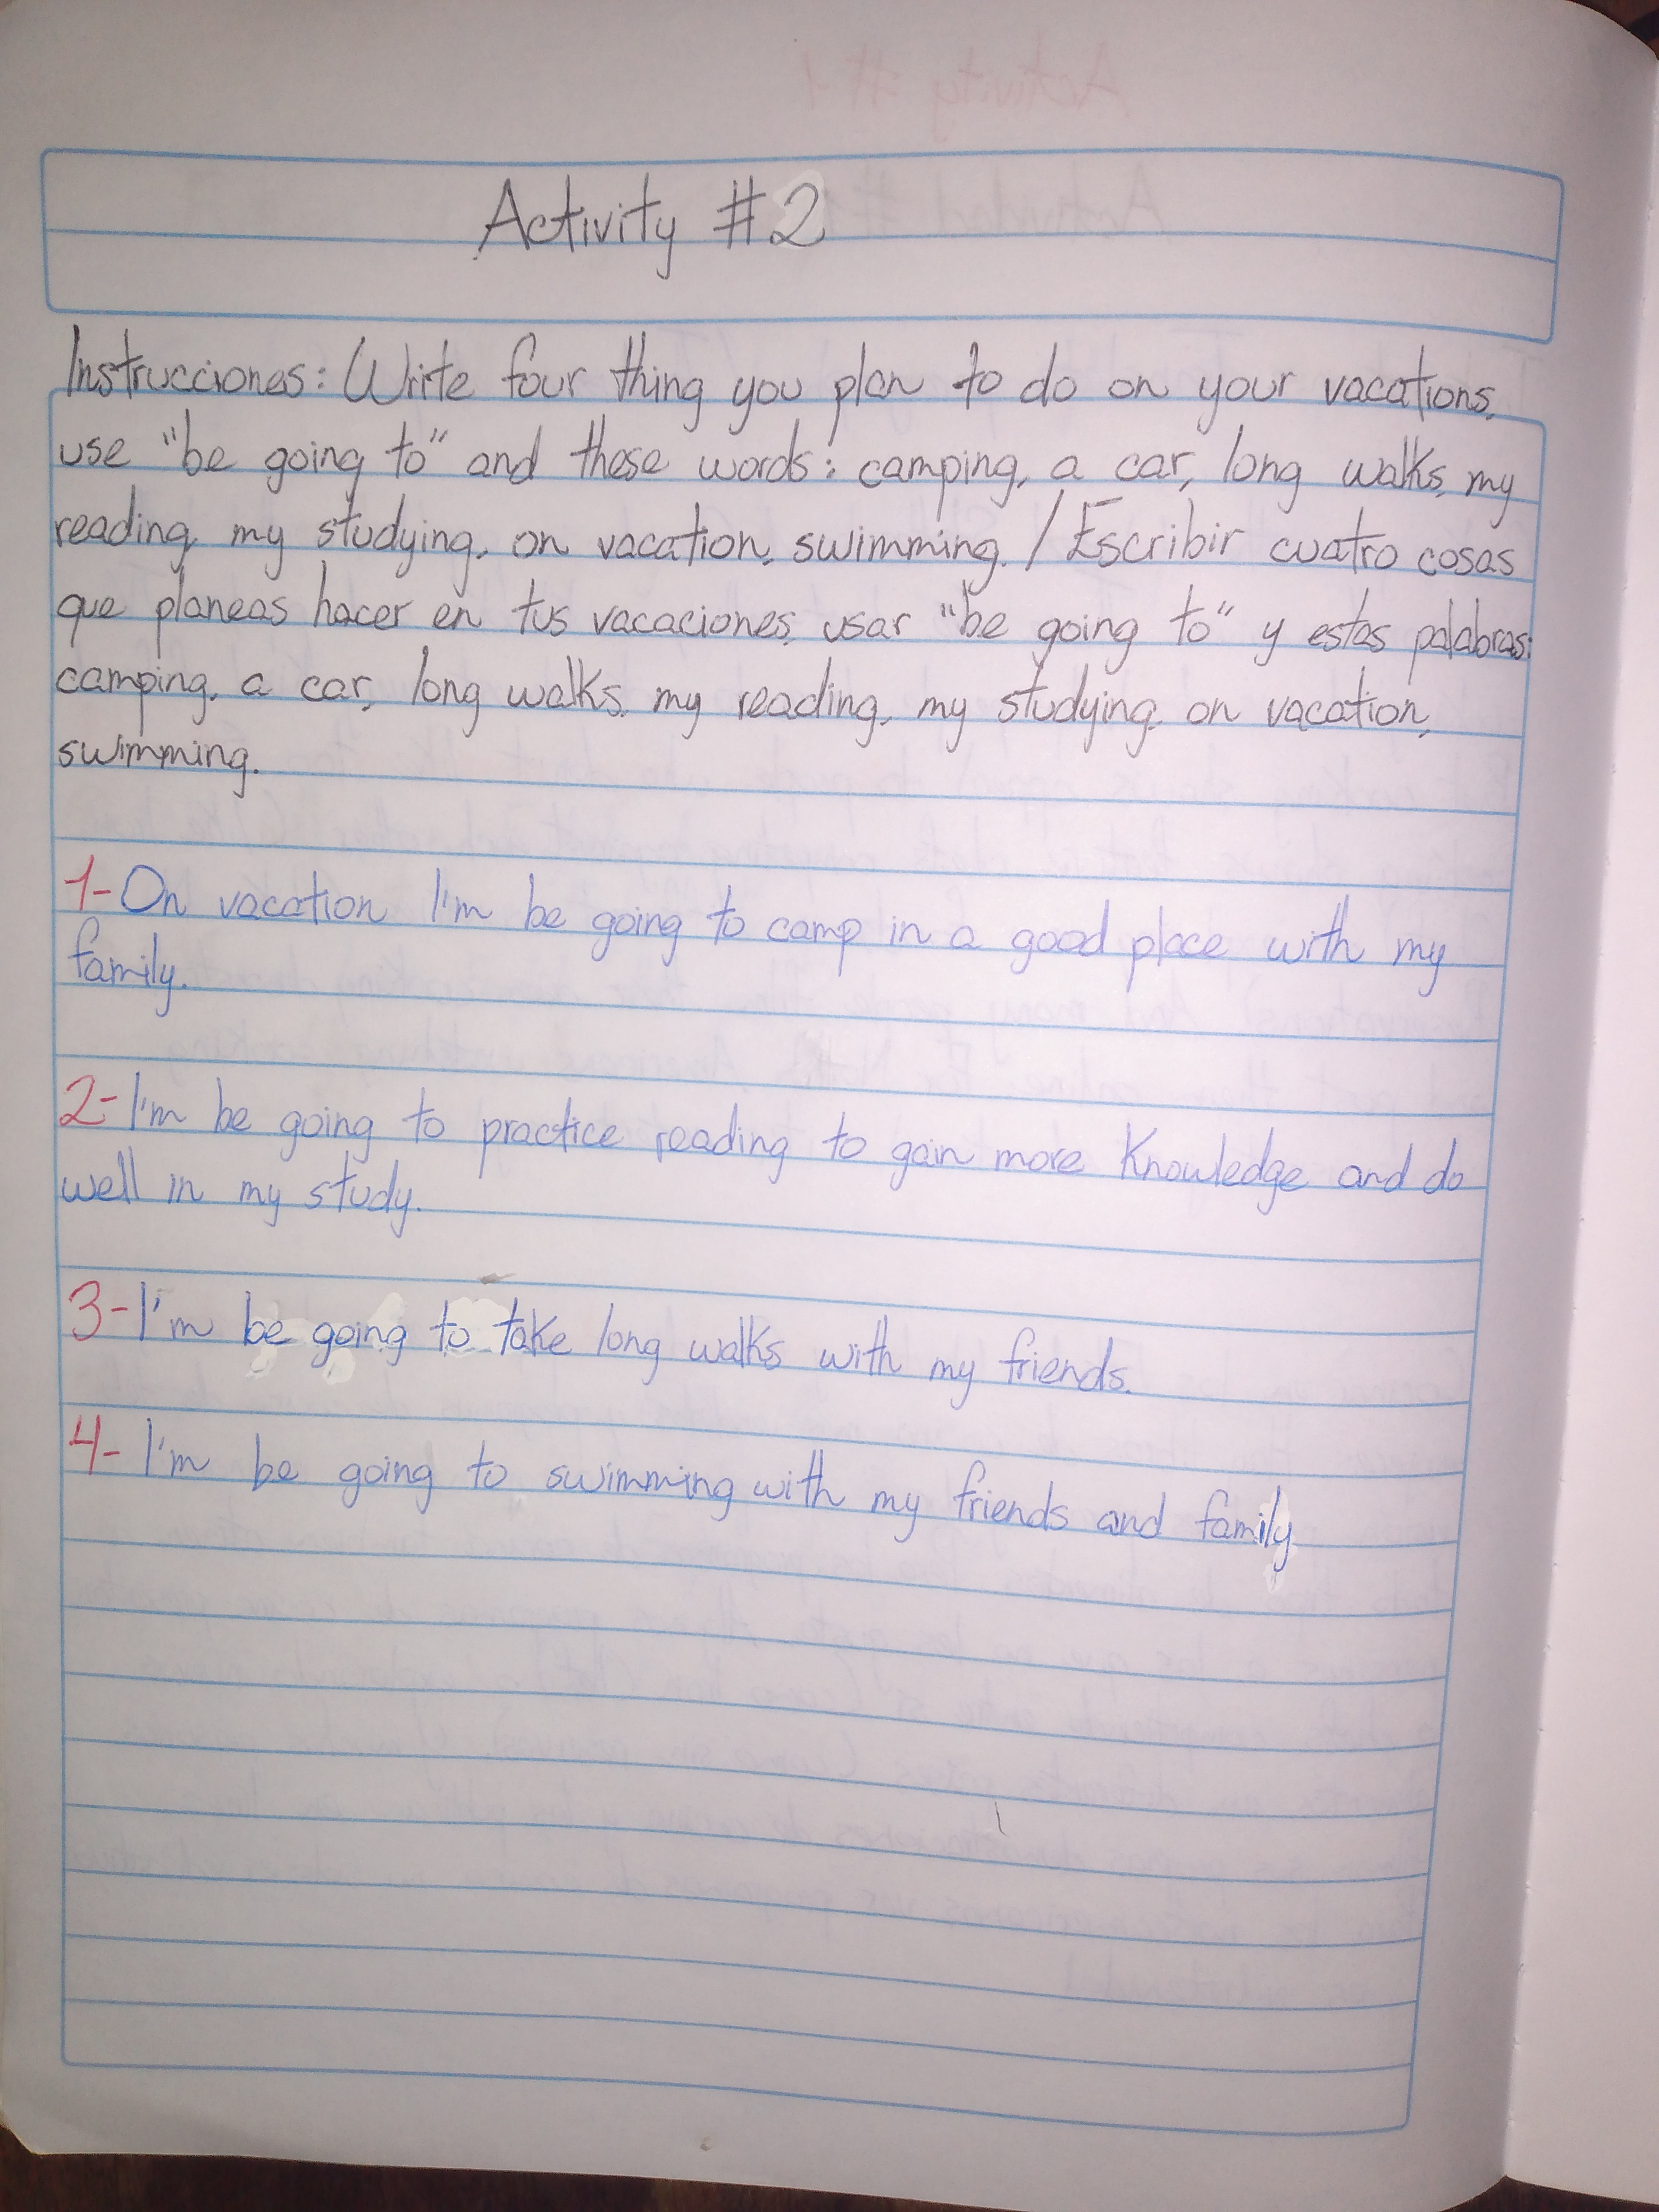 Activity #2
Instrucciones: Write four thing you plan to do on your vacations,
use "be going to" and these words: camping, a car, long walks, my
reading, my studying, on vacation, swimming. / Escribir cuatro cosas
que planeas hacer en tus vacaciones, usar "be going to" y estas palabras:
camping, a car, long walks, my reading, my studying, on vacation,
swimming.
1-On vacation I'm be going to camp in a good place with my
family.
2-I'm be going to practice reading to gain more Knowledge and do
well in my study.
3-I'm be going to take long walks with my friends.
4- I'm be going to swimming with my friends and family